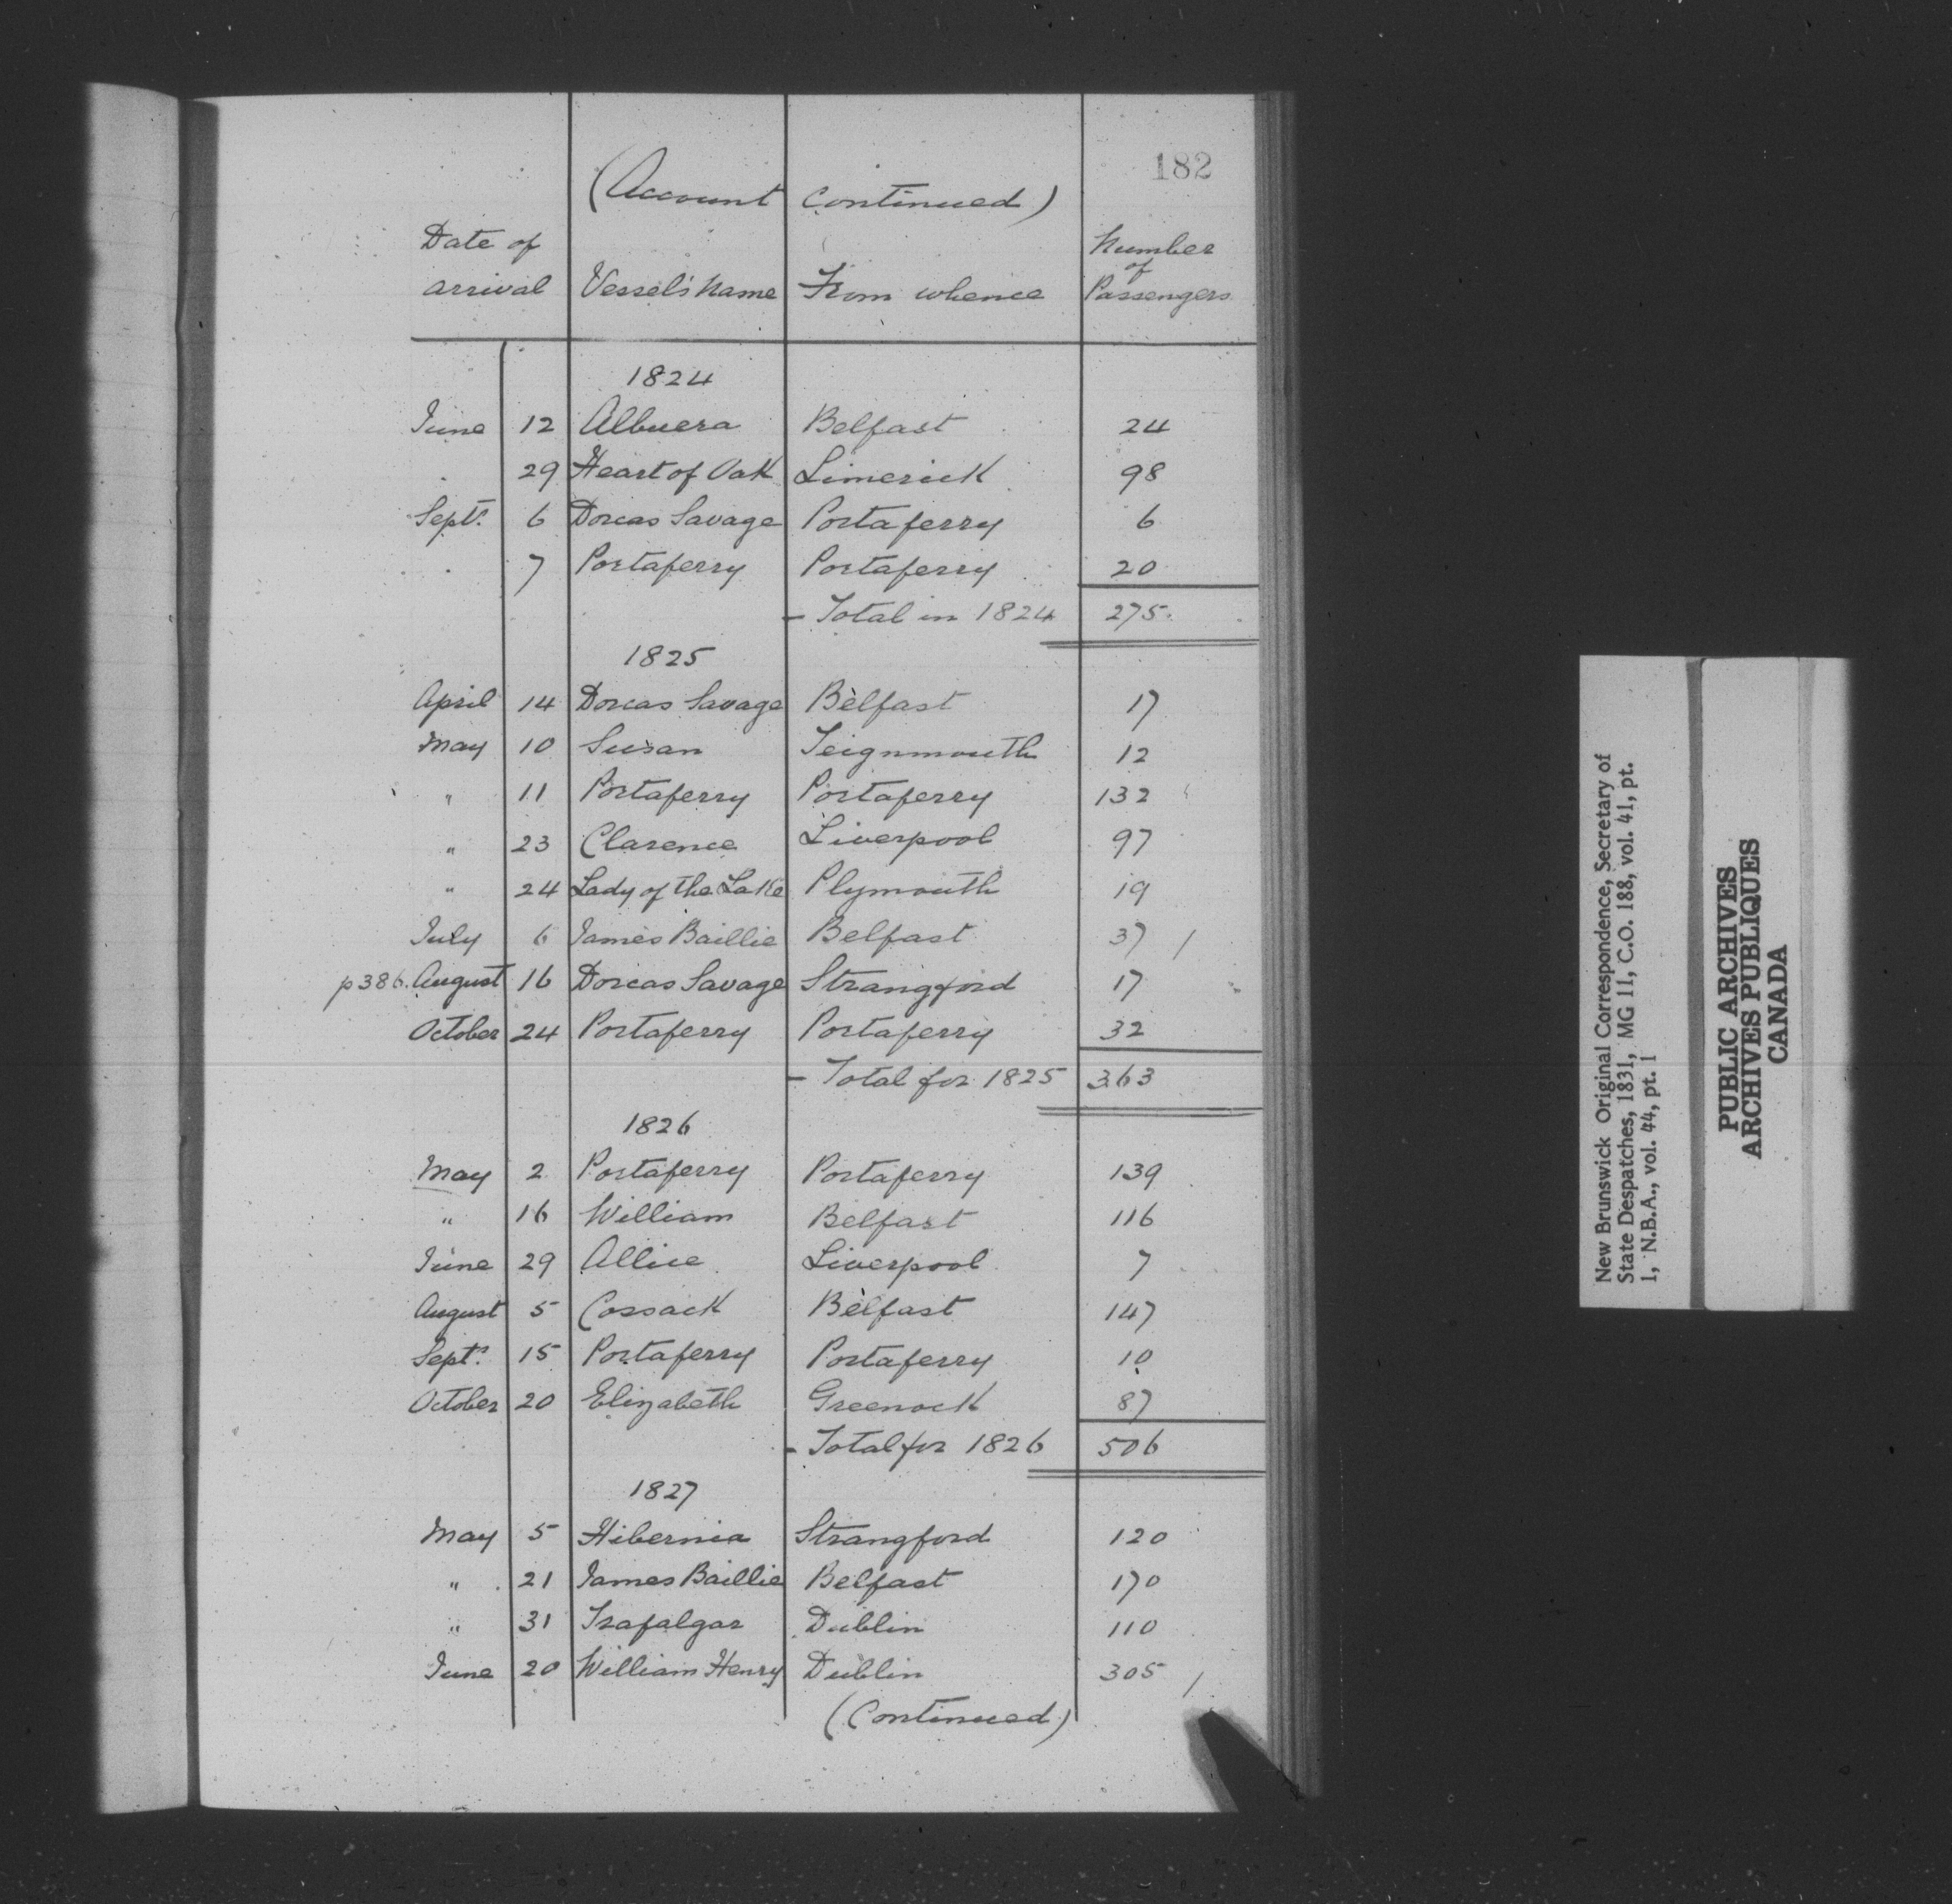 182
(Account continued)
Date of arrival Vessel's Name From whence Number of Passengers
1824
June 12 Albuera Belfast 24
. 29 Heart of Oak Limerick 98
Sept. 6 Dorcas Savage Portaferry 6
. 7 Portaferry Portaferry 20
- Total in 1824 275
1825
April 14 Dorcas Savage Belfast 17
May 10 Susan Teignmouth 12
" 11 Portaferry Portaferry 132
" 23 Clarence Liverpool 97
" 24 Lady of the Lake Plymouth 19
July 6 James Baillie Belfast 37 /
p386. August 16 Dorcas Savage Strangford 17
October 24 Portaferry Portaferry 32
- Total for 1825 363
1826
May 2 Portaferry Portaferry 139
" 16 William Belfast 116
June 29 Allice Liverpool 7
August 5 Cossack Belfast 147
Sept. 15 Portaferry Portaferry 10
October 20 Elizabeth Greenock 87
- Total for 1826 506
1827
May 5 Hibernia Strangford 120
" 21 James Baillie Belfast 170
" 31 Trafalgar Dublin 110
June 20 William Henry Dublin 305 /
(Continued)
New Brunswick Original Correspondence, Secretary of
State Despatches, 1831, MG 11, C.O. 188, vol. 41, pt.
1, N.B.A., vol. 44, pt. 1
PUBLIC ARCHIVES
ARCHIVES PUBLIQUES
CANADA